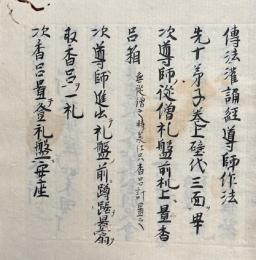 傳法灌誦註導師作法
先十弟子巻上壁代三面畢
次導師從僧礼盤前机上置香
呂箱
次導師進出礼盤前蹲踞置扇
取香呂一礼
次香呂置登礼盤安座